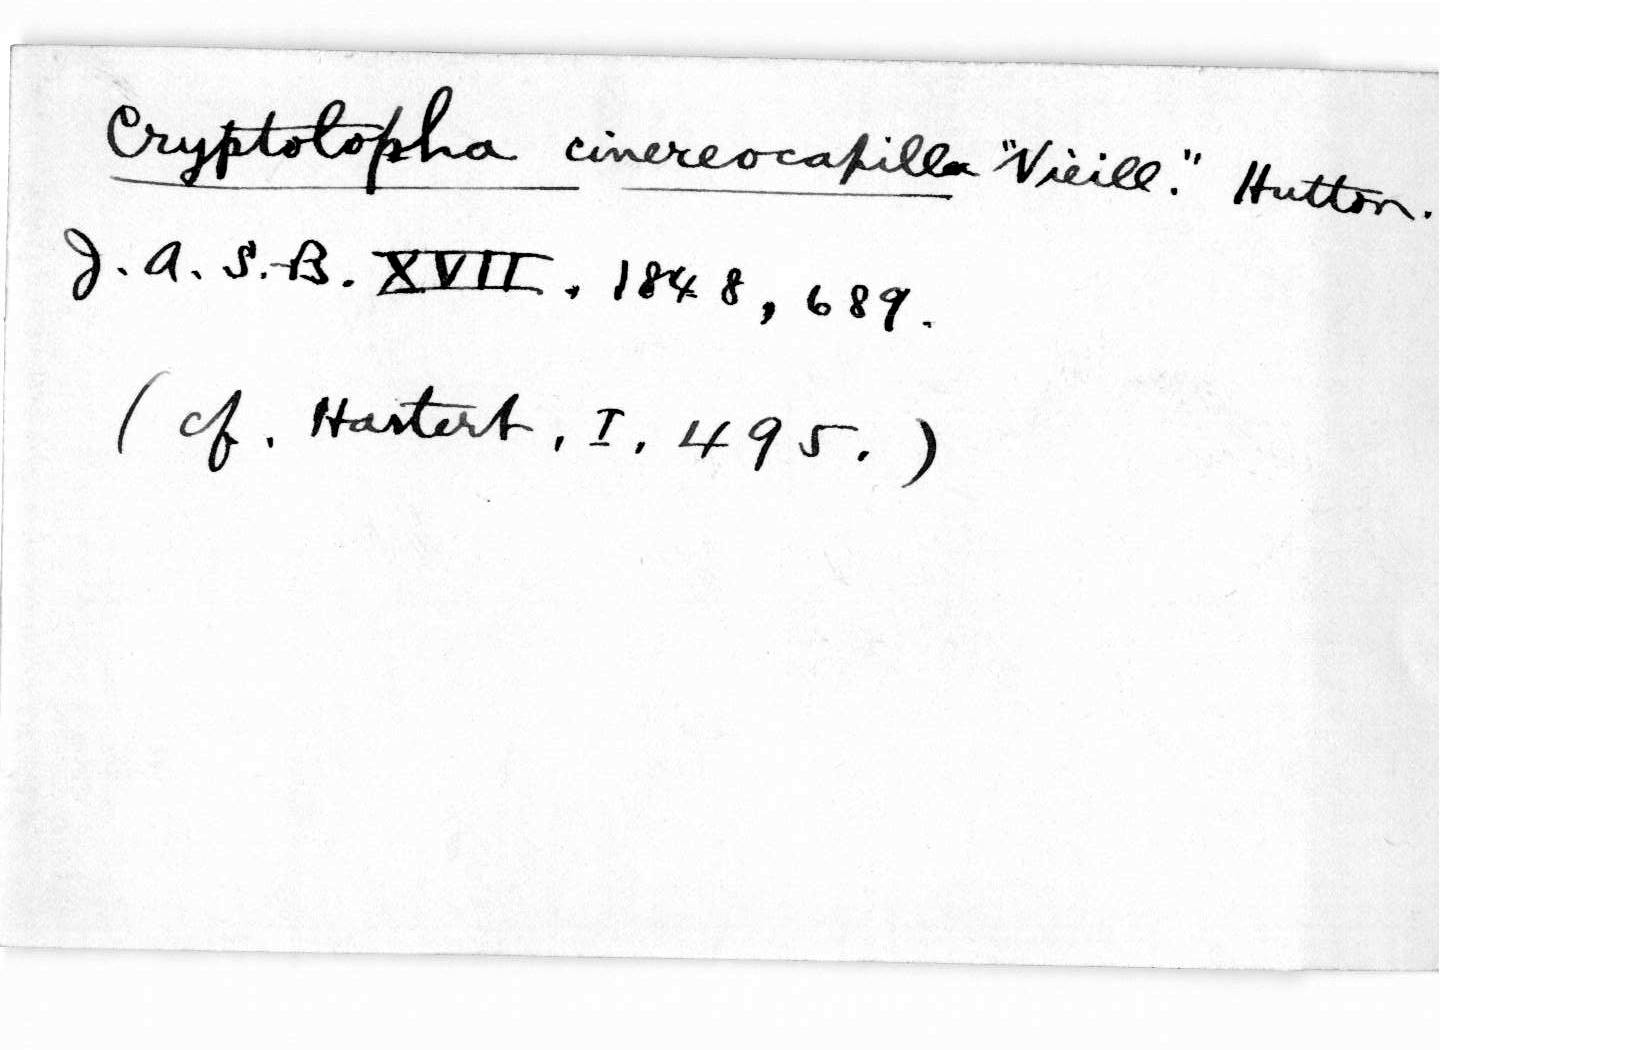 Cryptolopha cinereocapilla "Vieill." Hutton.
J. A. S. B. XVII, 1848, 689.
(cf. Hartert, I, 495.)